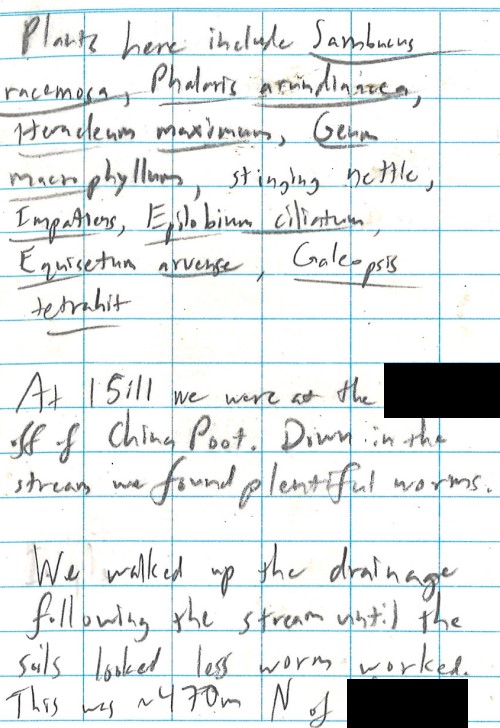 Plants here include Sambucus
racemosa, Phalaris arundinacea,
Heracleum maximum, Geum
macrophyllum, stinging nettle,
Impatiens, Epilobium ciliatum,
Equisetum arvense, Galeopsis
tetrahit
At 1511 we were at the
off of China Poot. Down in the
stream we found plentiful worms.
We walked up the drainage
following the stream until the
soils looked less worm worked.
This was ~470m N of